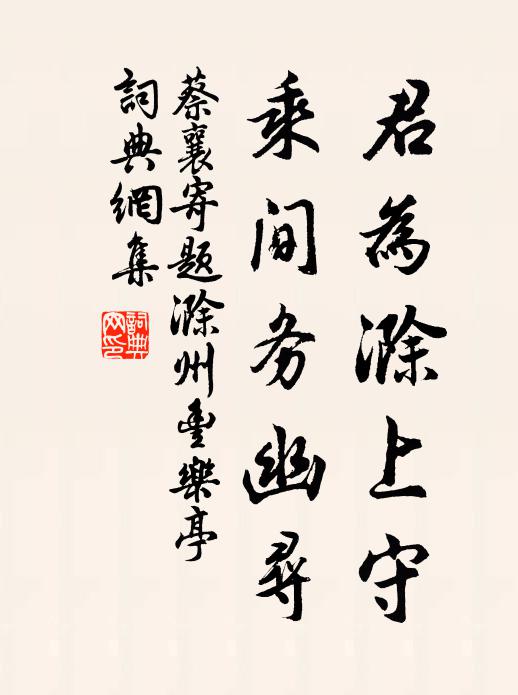 君為滁上守
乘间务幽尋
蔡襄寄题滁州豐樂亭
詞典網集
詞典
网印